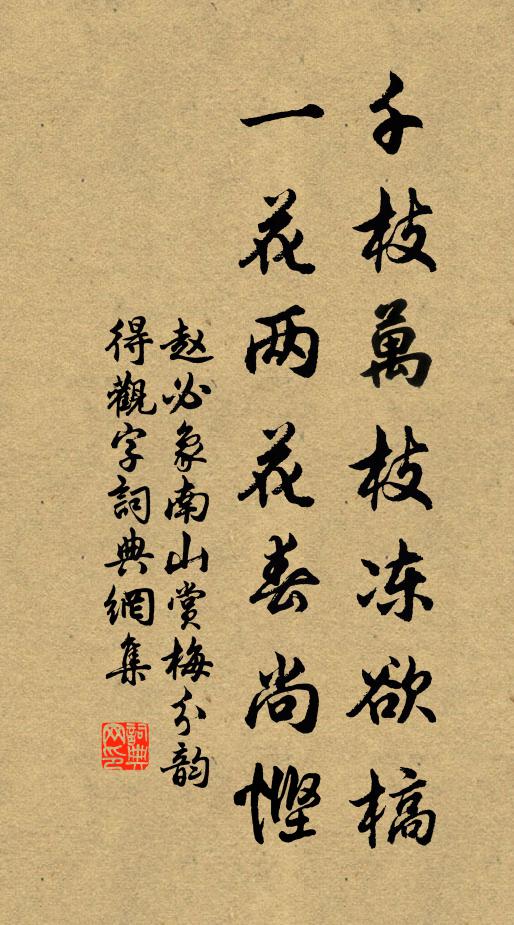 千枝萬枝冻欲槁
一花两花春尚悭
赵必象南山赏梅分韵
得觀字詞典網集
詞典网印